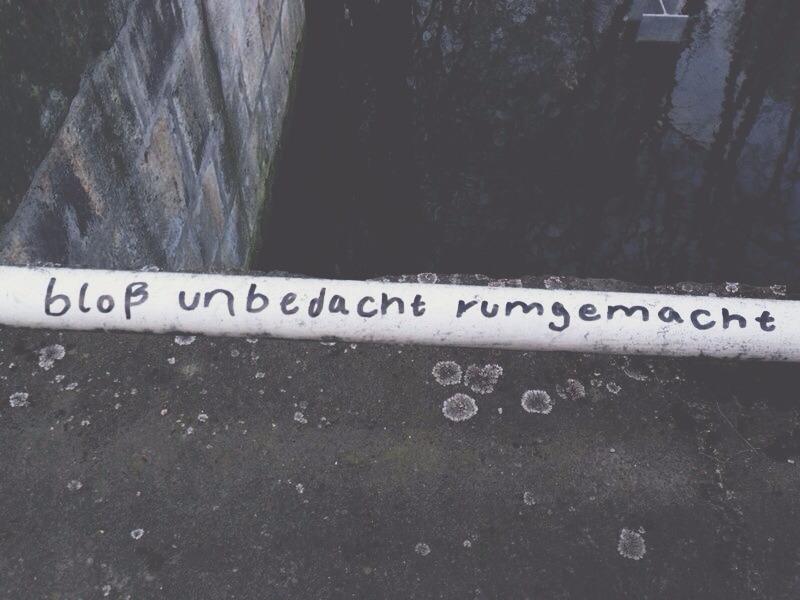 bloß unbedacht rumgemacht